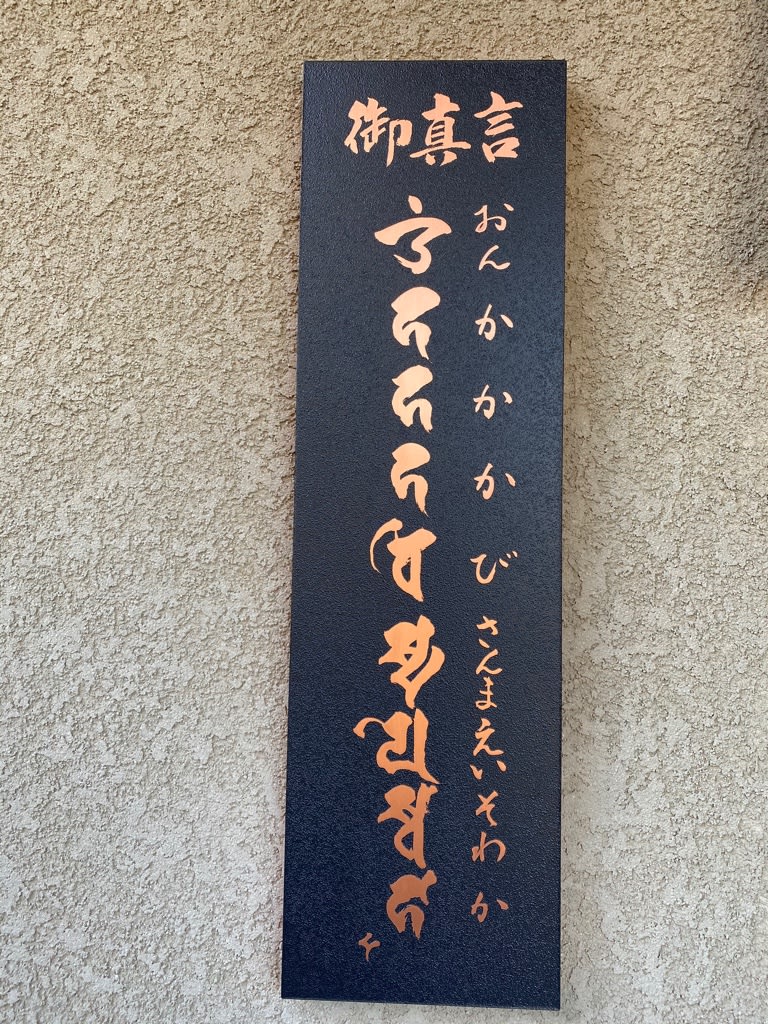 御真言
おんかかかびさんまえいそわか
𑖌𑖼𑖮𑖮𑖮𑖪𑖰𑖭𑖿𑖦𑖧𑖸𑖭𑖿𑖪𑖯𑖮𑖯